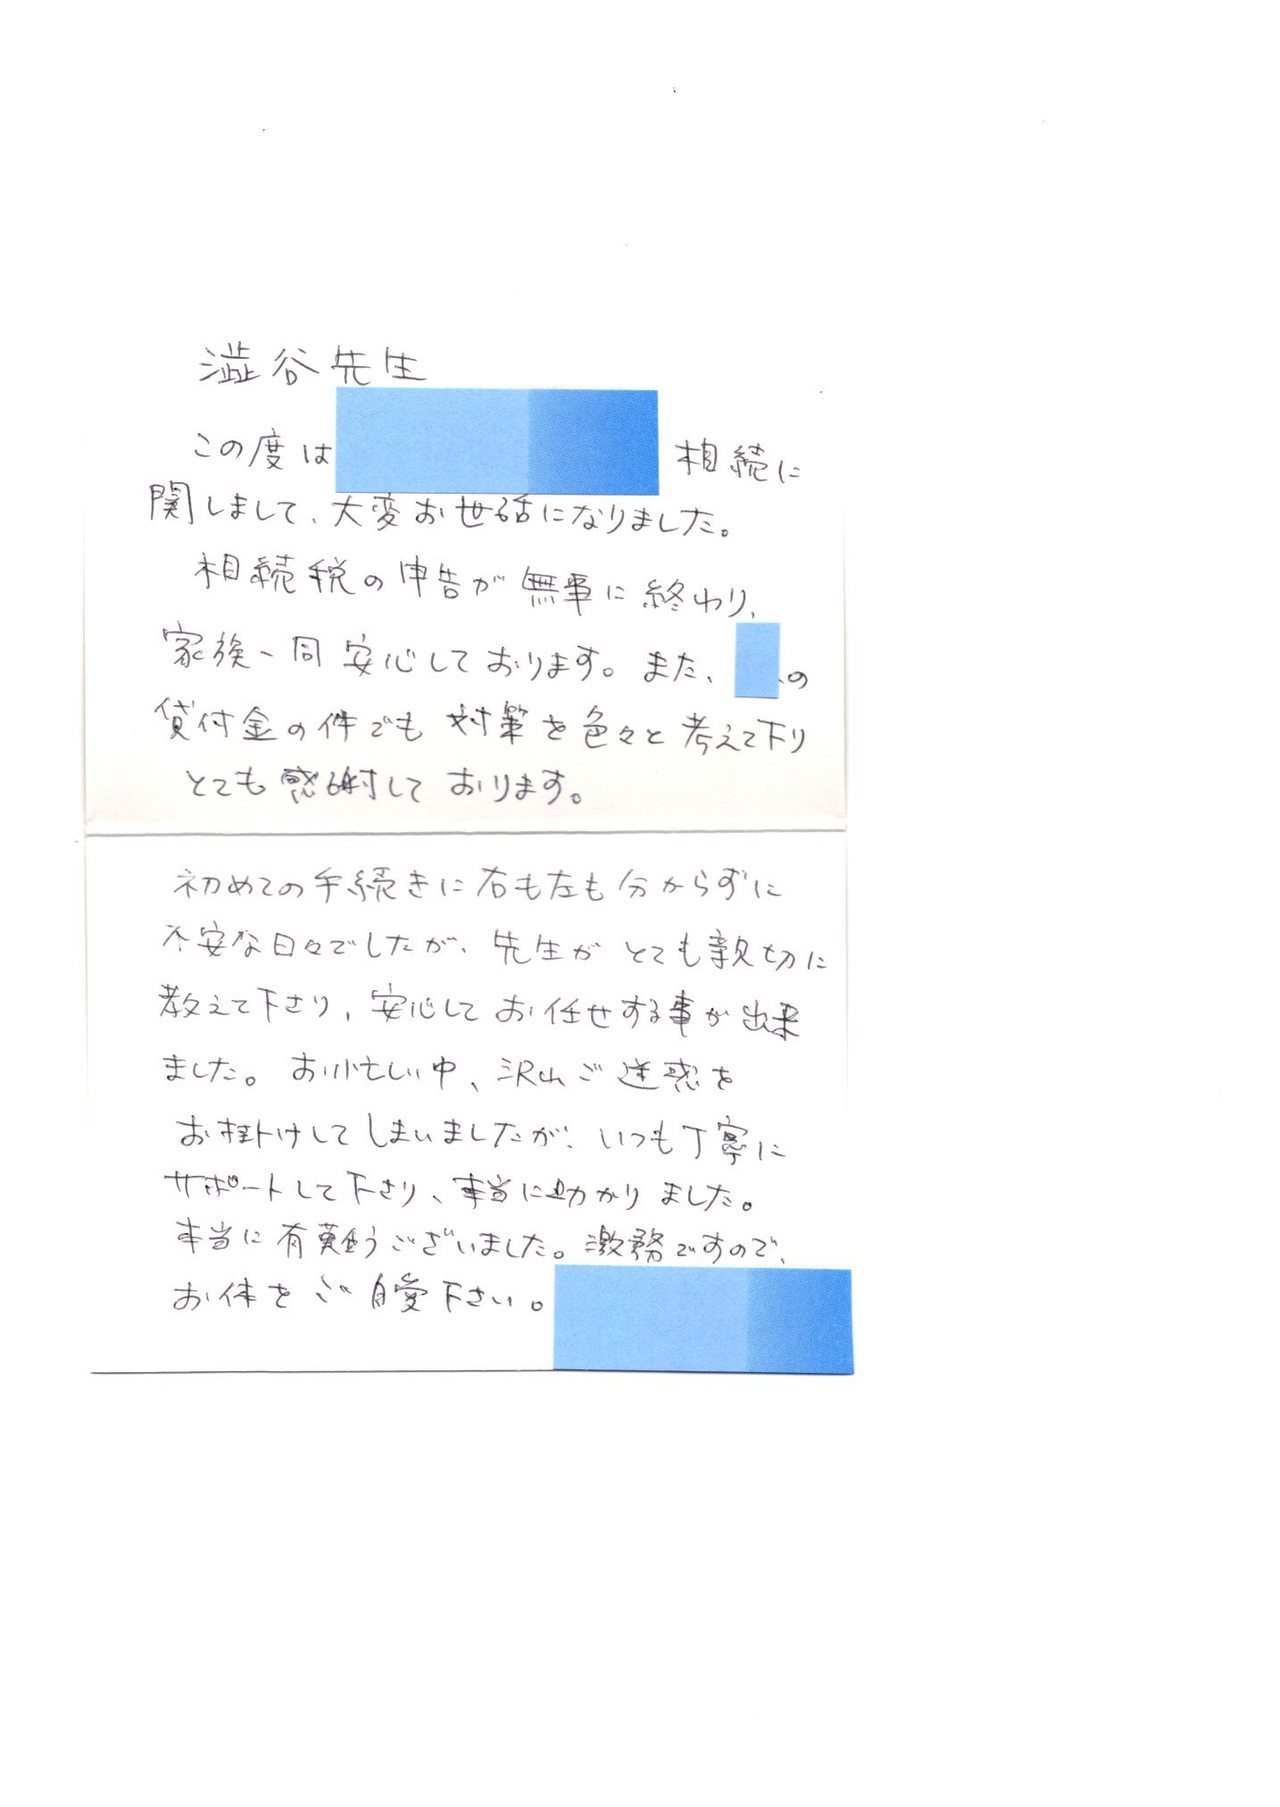 澁谷先生
この度は 相続に
関しまして、大変お世話になりました。
相続税の申告が無事に終わり、
家族一同安心しております。また、 の
貸付金の件でも対策を色々と考えて下り
とても感謝しております。
初めての手続きに右も左も分からずに
不安な日々でしたが、先生がとても親切に
教えて下さり、安心してお任せする事が出来
ました。お忙しい中、沢山ご迷惑を
お掛けしてしまいましたが、いつも丁寧に
サポートして下さり、本当に助かりました。
本当に有難うございました。激務ですので、
お体をご自愛下さい。